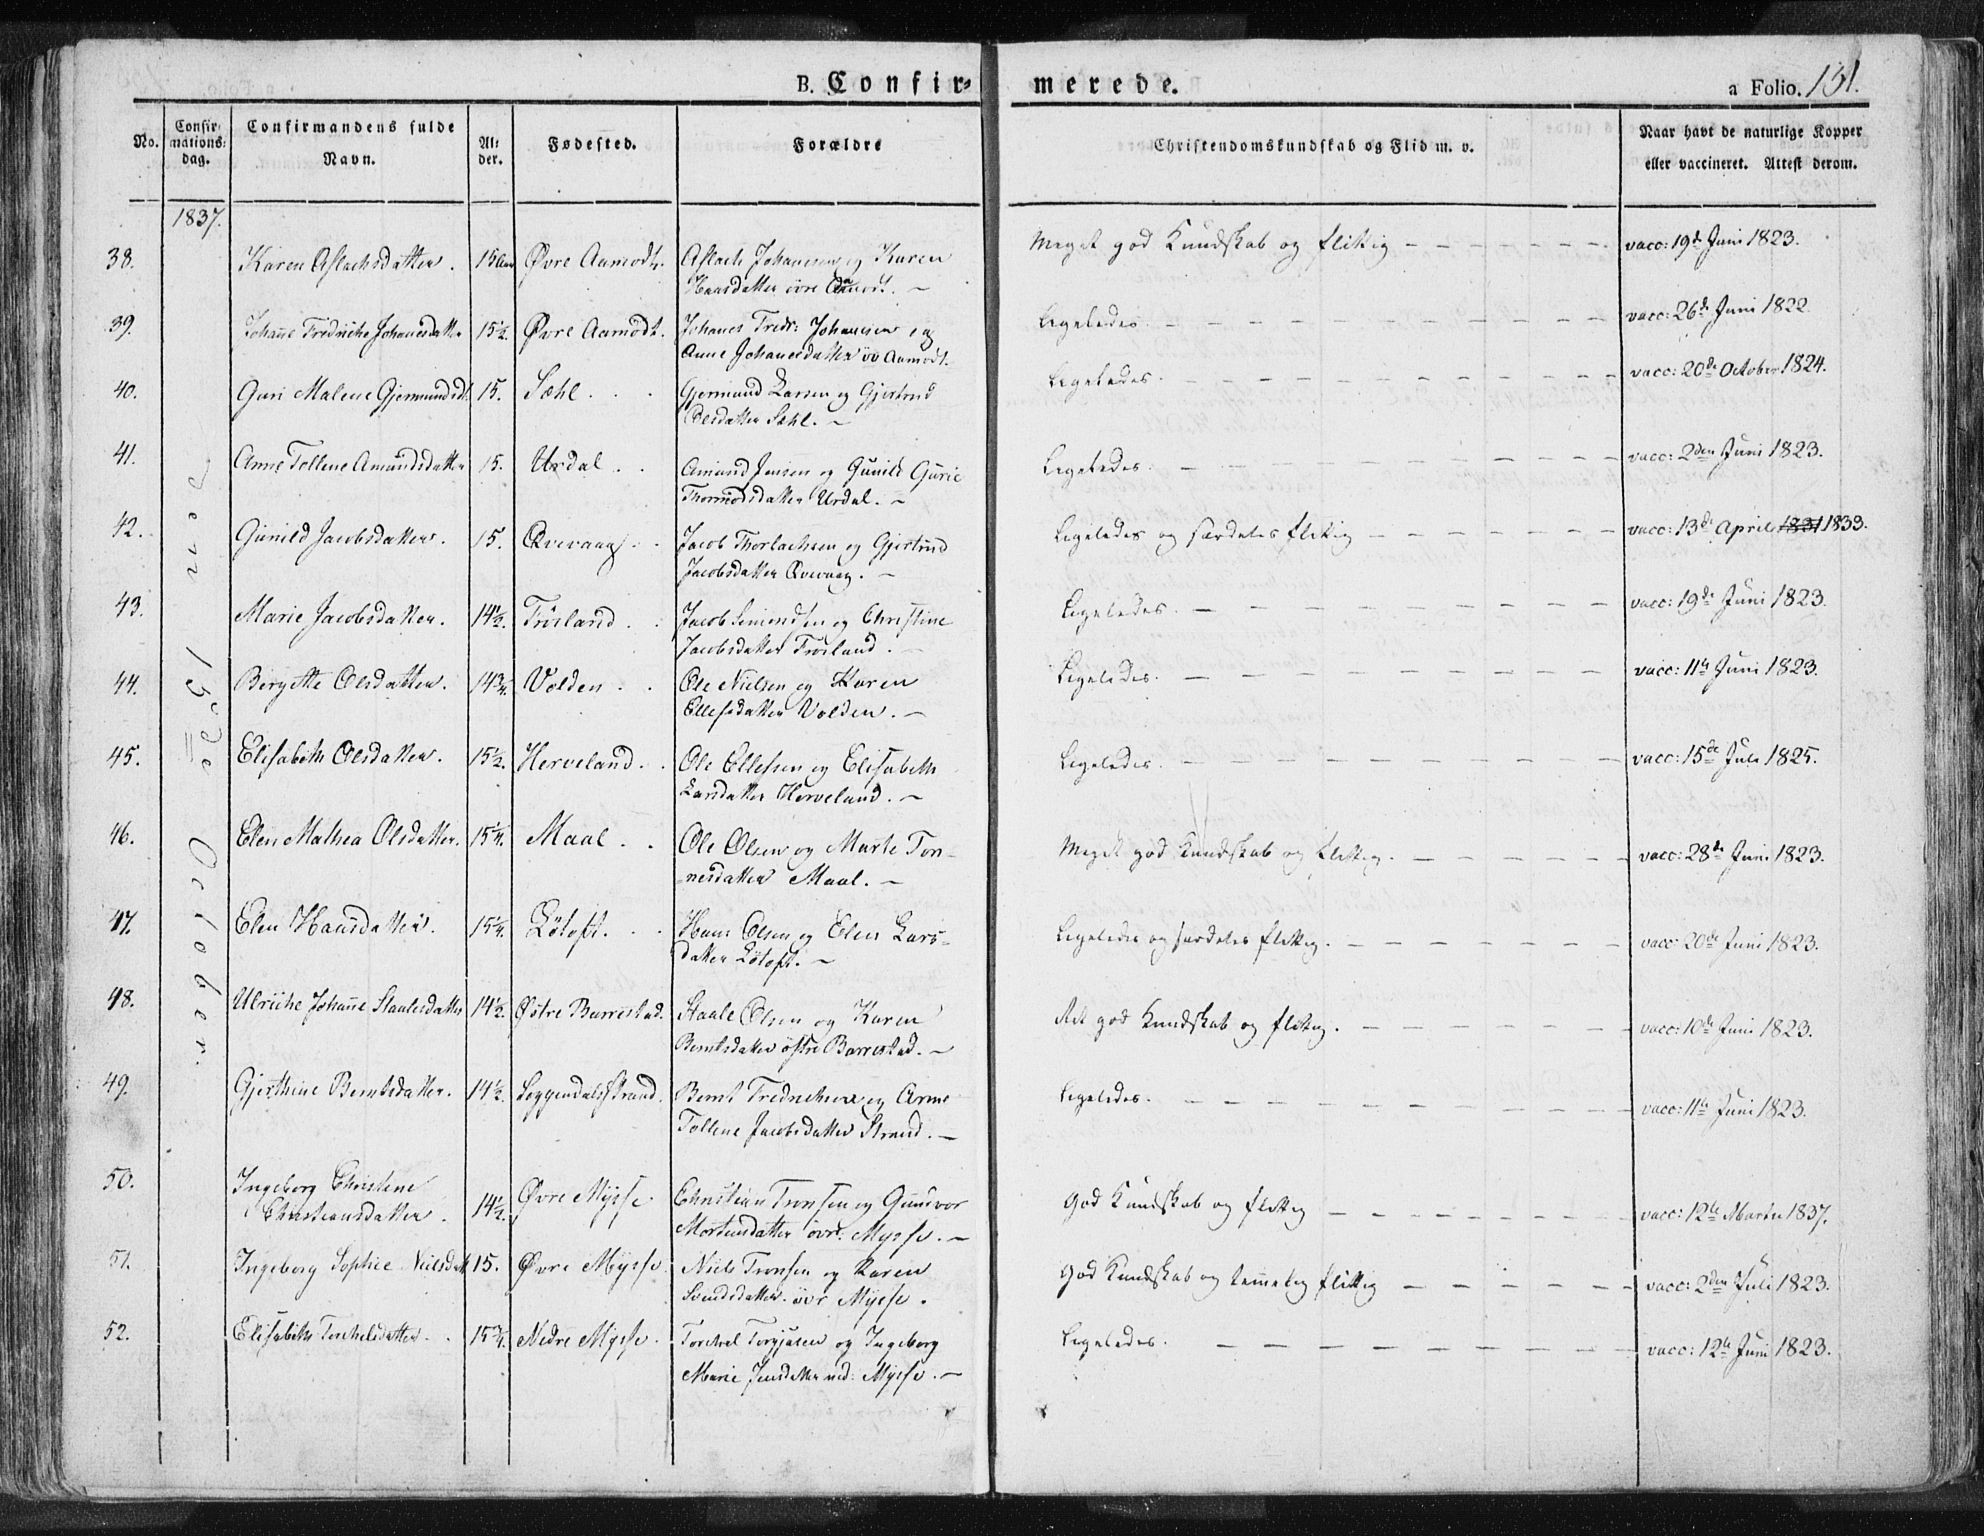 B. Confir-
merede.
a Folio. 131.
No.
Confir-
mations-
dag.
Confirmandens fulde
Navn.
Al-
der.
Fødested.
Forældre
Christendomskundskab og Flid m. v.
Naar havt de naturlige Kopper
eller vaccineret. Attest derom.
1837.
den 15de October.
38. Karen Aslachsdatter. 15 Aar Øvre Aamodt. Aslach Johannesen og Karen
Hansdatter övre Aamodt. —
Meget god Kundskab og flittig vacc: 19de Juni 1823.
39. Johanne Fredriche Johanesdatter 15½. Øvre Aamodt. Johanes Fredr: Johanesen og
Anne Johanesdatter öv Aamodt.
Ligeledes vacc: 26de Juni 1822.
40. Guri Malene Gjermundsdt. 15. Sæhl. Gjermund Larsen og Gjertrud
Olesdatter Sæhl. —
Ligeledes. vacc: 20de October 1824.
41. Anne Tollene Amundsdatter 15. Urdal. Amund Jensen og Gunild Gurie
Thormodsdatter Urdal. —
Ligeledes. vacc: 2den Juni 1823.
42. Gunild Jacobsdatter. 15. Qvevaag. Jacob Thorlachsen og Gjertrud
Jacobsdatter Qvevaag. —
Ligeledes og særdeles flittig vacc: 13de April 1831 1833.
43. Marie Jacobsdatter. 14½. Frösland. Jacob Simonsen og Christine
Jacobsdatter Frösland.
Ligeledes. vacc: 19de Juni 1823.
44. Bergitte Olsdatter. 14¾. Volden. Ole Nielsen og Karen
Ellefsdatter Volden. —
Ligeledes. vacc: 11te Juni 1823.
45. Elisabeth Olsdatter. 15½. Herveland. Ole Ellefsen og Elisabeth
Larsdatter Herveland. —
Ligeledes. vacc: 15de Juli 1825.
46. Elen Mathea Olsdatter. 15¼. Maal. Ole Olsen og Marte Ton-
nesdatter Maal. —
Meget god Kundskab og flittig. vacc: 28de Juni 1823.
47. Elen Hansdatter. 15¼. Lötoft. Hans Olsen og Elen Lars-
datter Lötoft. —
Ligeledes og særdeles flittig. vacc: 20de Juni 1823.
48. Ulriche Johanne Staalesdatter 14½. Østre Barrestad. Staale Olsen og Karen
Berntsdatter östre Barrestad. —
Ret god Kundskab og flittig. vacc: 10de Juni 1823.
49. Gjerthine Berntsdatter. 14½. Loggendalsstrand. Bernt Fredrichsen og Anne
Tollene Jacobsdatter Strand. —
Ligeledes. vacc: 11te Juni 1823.
50. Ingeborg Christene
Christiansdatter. 14½. Øvre Mysse. Christian Tronsen og Gundvor
Mortensdatter övr: Mysse. —
God Kundskab og flittig vacc: 12te Martz 1837.
51. Ingeborg Sophie Nielsdatt. 15. Øvre Mysse Niels Tronsen og Karen
Svendsdatter. övr Mysse.
God Kundskab og temmelig flittig vacc: 2den Juli 1823.
52. Elisabeth Torchelsdatter. 15¾. Nedre Mysse. Torchel Torgjusen og Ingeborg
Marie Jensdatter ned: Mysse. —
Ligeledes. vacc: 12te Juni 1823.